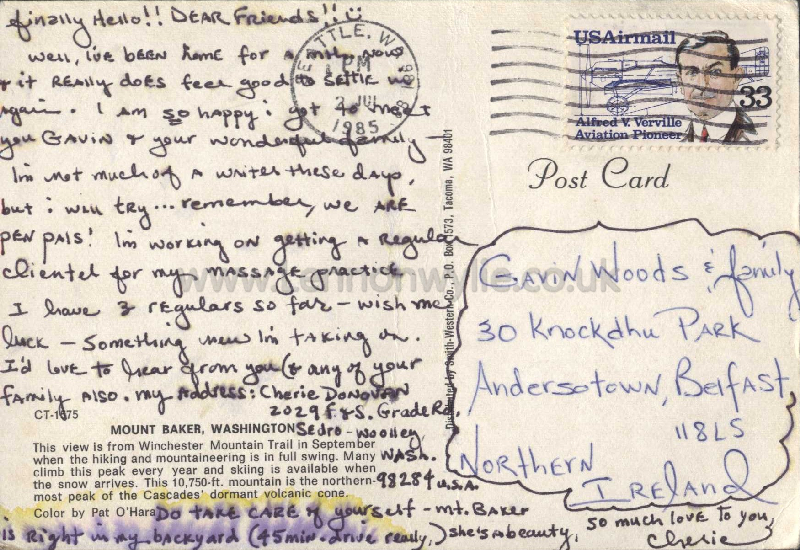 finally Hello!! DEAR FRiends!!
well, i've BEEN home for a now
+ it REAlly DOES feel good to SETTLE in
again. I AM so happy i got to meet
you GAVIN + your wonderful family
I'm not much of A writer these days,
but i will try... remember, we ARE
PEN PAls! I'm working on getting A REgular
clientel for my MASSAGE practice
I have 3 regulars so far - wish me
luck - Something new I'm taking on.
I'd love to hear from you (& any of your
family Also. my ADDress: CheRie DONOVAN
2029 F&S. Grade Rd.
SEdro-Woolley
WASh.
98284 U.S.A.
CT-1675
MOUNT BAKER, WASHINGTON
This view is from Winchester Mountain Trail in September
when the hiking and mountaineering is in full swing. Many
climb this peak every year and skiing is available when
the snow arrives. This 10,750-ft. mountain is the northern-
most peak of the Cascades' dormant volcanic cone.
Color by Pat O'Hara
DO TAKE CARE of yourself - mt. BAKER
is Right in my backyard (45 min. drive really,) she's A beauty.
so much love to you,
Cherie
SEATTLE, WA
PM
2 JUL
1985
USAirmail
33
Alfred V. Verville
Aviation Pioneer
Post Card
Distributed by Smith-Western Co., P.O. Box 1573, Tacoma, WA 98401
GAVIN WOODS & family
30 Knockdhu PARK
Andersotown, Belfast
118LS
NORTHERN
IRELAND
www.lennonwylie.co.uk